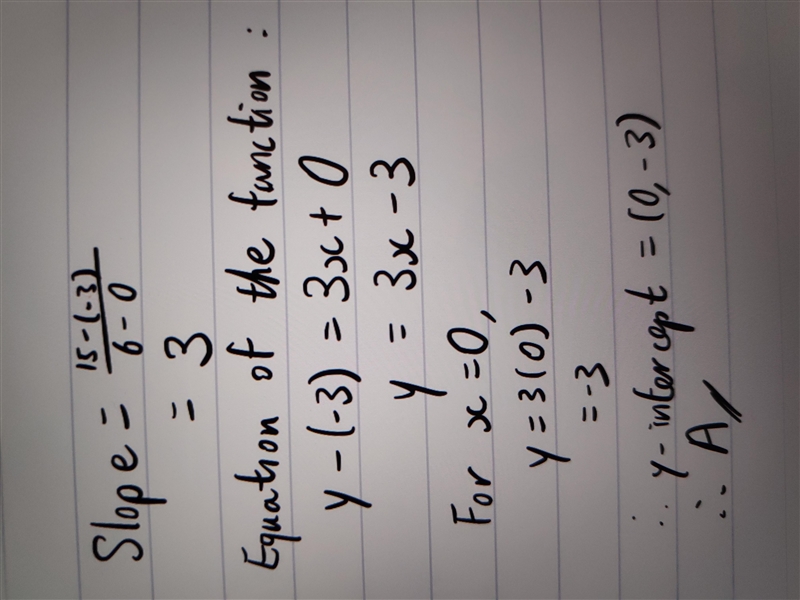 Slope = \frac{15-(-3)}{6-0}
= 3
Equation of the function :
y - (-3) = 3x + 0
y = 3x - 3
For x = 0,
y = 3(0) - 3
= -3
∴ y-intercept = (0, -3)
∴ A //